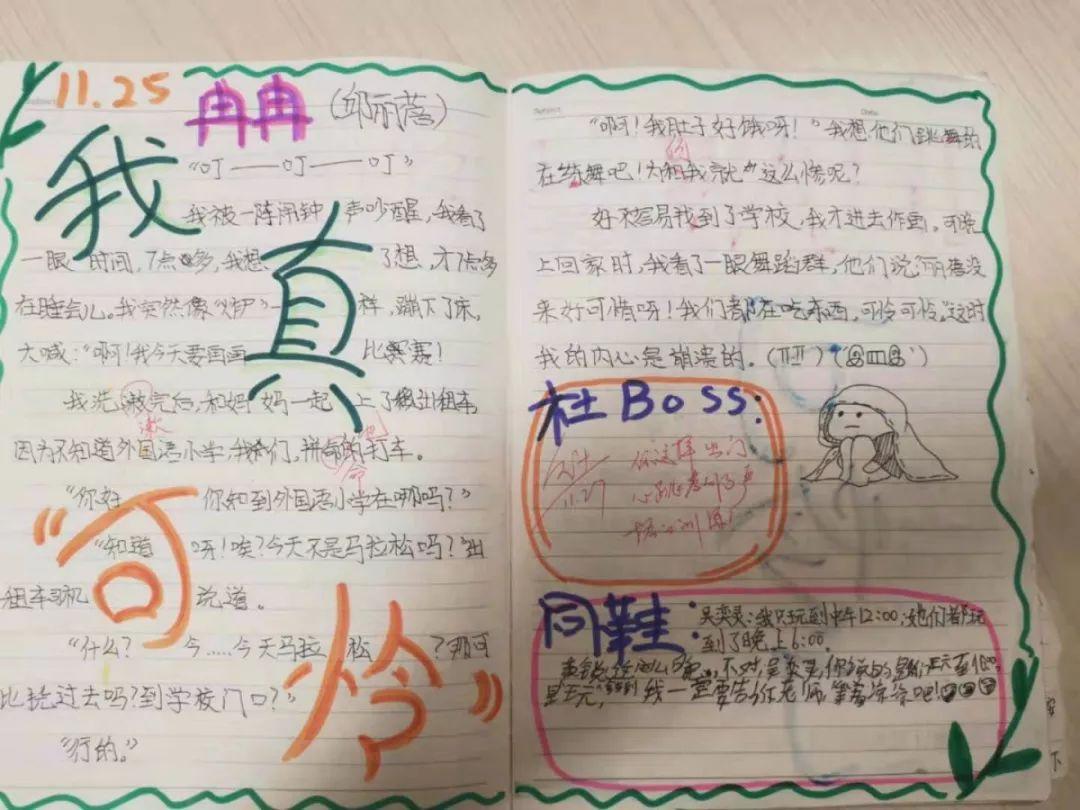 11.25
冉冉(邱丽蓓)
我真"可怜"
"叮——叮——叮"
我被一阵闹钟声吵醒,我看了
一眼时间,7点多,我想了想,才7点多
在睡会儿。我突然像"炉"一样,蹦下了床,
大喊:"啊!我今天要画画比赛赛!
我洗漱完后,和妈妈一起上了出租车,
因为不知道外国语小学,我们,拼命的打车。
"你好 你知到外国语小学在哪吗?"
"知道呀!唉?今天不是马拉松吗?"出
租车司机说道。
"什么?今……今天马拉松?那可
比挠过去吗?到学校门口?"
"行的。"
"啊!我肚子好饿呀!"我想他们跳舞的
在练舞吧!大
这么惨呢?
好不容易找到了学校,我才进去作画。可晚
上回家时,我看了一眼舞蹈群,他们说丽蓓没
来好可惜呀!我们都在吃东西。可怜可怜。"这时
我的内心是崩溃的。
杜Boss:
你这样出门
11.27
同鞋:
吴奕灵:我只玩到中午12:00,她们都玩
到了晚上6:00.
不对,吴奕灵,你
我一定要告诉老师,等着
吧!